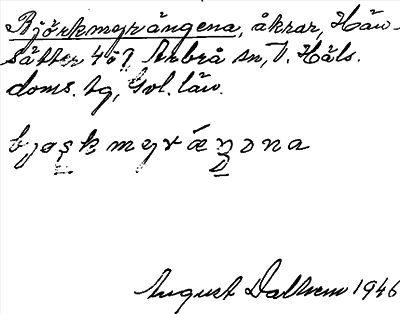 Björkmyrängena, åkrar, Hän-
sätter 4 o 7 Arbrå sn, V. Häls.
doms. tg, Gvl. län.
bjøşk myrǽŋɔna
August Dalhem 1946